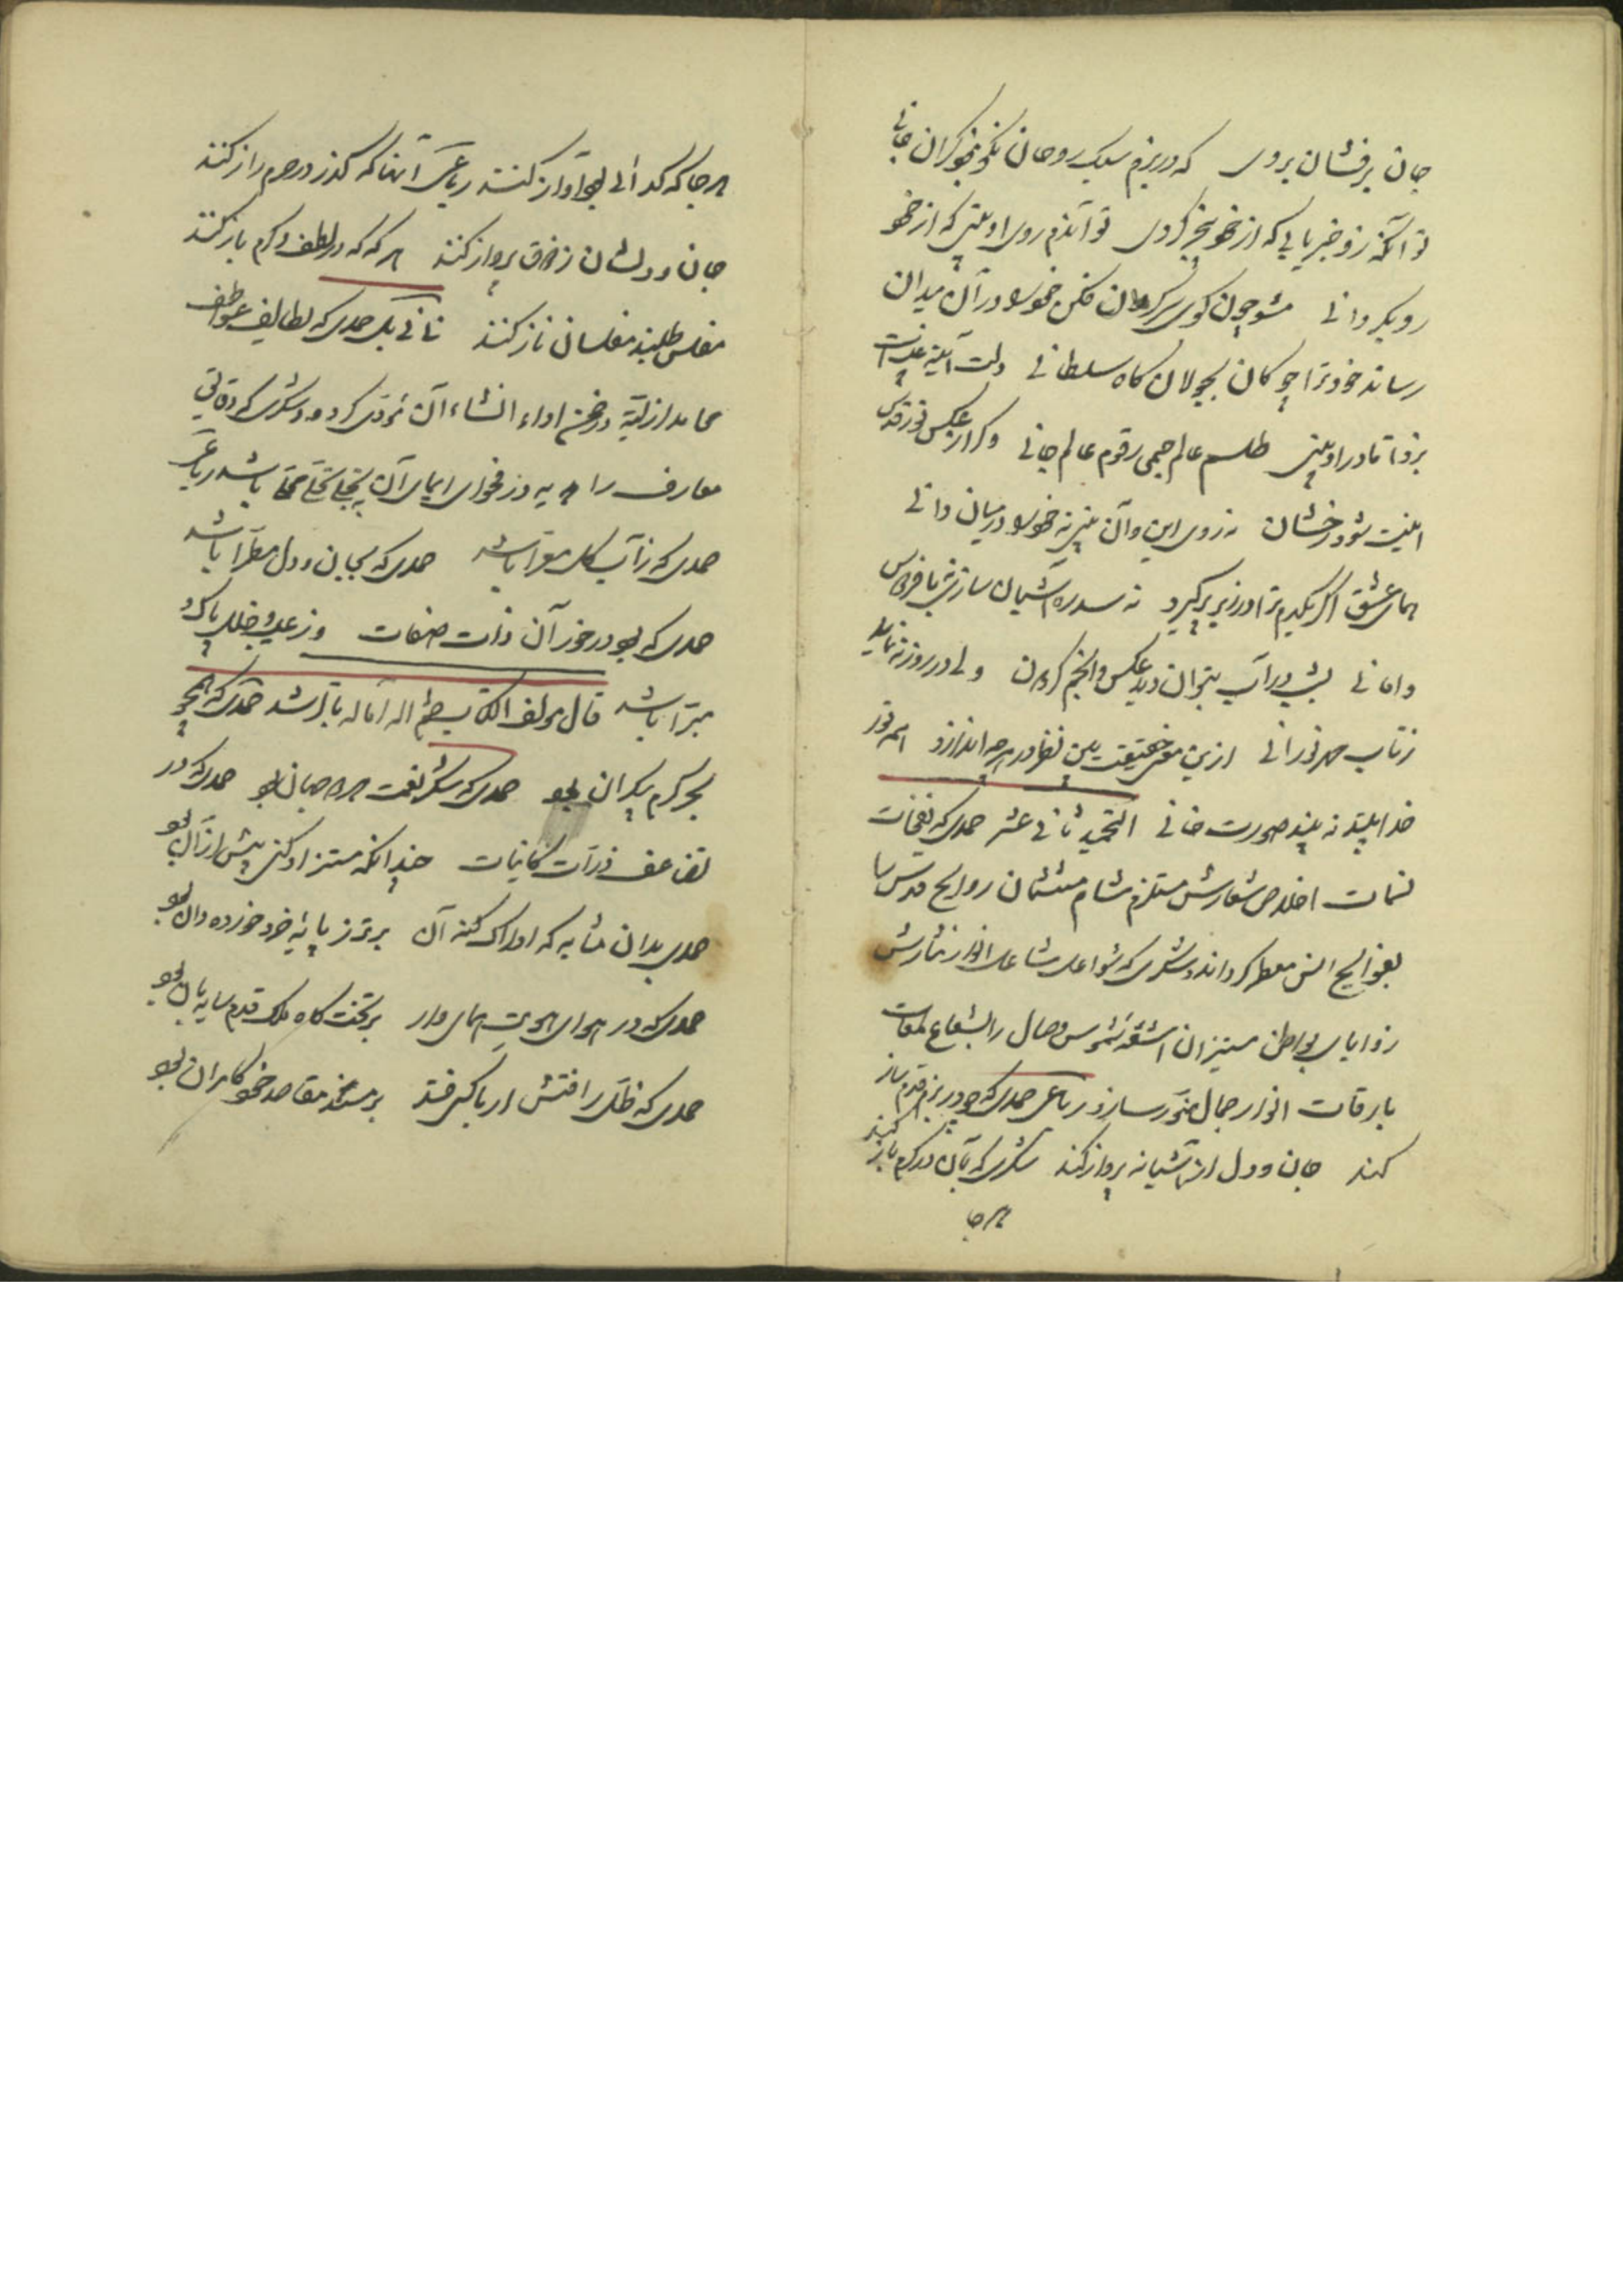 جان برفشان بروی که در بزم سبک روحان نکو نبود گران جانی
تو آنگه زو خبر یابی که از خود بیخبر گردی تو آندم روی او بینی که از خود
رو بگردانی مشو چون گوی سرگردان فکن خود را در آن میدان
رساند خود ترا چوکان بجولان کاه سلطانی دلت آیینه
بزدا تا در او بینی طلسم عالم جسمی رقوم عالم جانی وکر از عکس نور قدس
ایمنت شود رخشان نه روی این و آن بینی نه خود را در میان دانی
همای عشق اگر یکدم ترا در زیر پر گیرد نه سدره آشیان سازی نه با فردوس
وامانی بشب در آب بتوان دید عکس انجم گردون ولی در روز ننماید
ز تاب مهر نورانی ازین معنی حقیقت بین نظر در هر چه اندازد همه نور
خدا بیند نه بیند صورت فانی التحمید ثانی عشر حمدی که نفحات
نسمات اخلاص شعارش مستلزم مشام مستشمان روایح قدس را
بفوایح انس معطر کرداند و شکری که شواعل مشاعل انوار نثارش
زوایای بواطن مستنیران اشعه شموس وصال را بشعاع لمعات
بارقات انوار جمال منور سازد رباعی حمدی که چو در بزم قدم ساز
کند جان و دل از آشیانه پرواز کند شکری که بآن در کرم باز کنند
هرجا
هرجا که گدائی بود آواز کنند رباعی آنها که گذر در حرم راز کنند
جان و دلشان ز شوق پرواز کنند هر که که در لطف و کرم باز کنند
مفلس طلبند مفلسان ناز کنند ثانی یک حمدی که لطایف عواطف
محامد ازلیة در ضمن اداء انشاء آن مؤدی کردد و شکری که دقایق
معارف را از فحوای ایمای آن تجلی باشد رباعی
حمدی که ز آب گل معرا باشد حمدی که بجان و دل مطرا باشد
حمدی که بود در خور آن ذات صفات وز عیب و خلل پاک و
مبرا باشد قال مولف الکتاب حمدی که همچو
بحر کرم بیکران بود حمدی که شکر نعمت هر دو جهان بود حمدی که در
تضاعف ذرات کاینات چندانکه مستزاد کنی بیش از آن بود
حمدی بدان مثابه که ادراک کنه آن برتر ز پایه خرد خورده دان بود
حمدی که در هوای هویت همای وار بر تختگاه ملک قدم سایه بان بود
حمدی که ظل رافتش ار باکیی فتد بر مسند مقاصد خود کامران بود